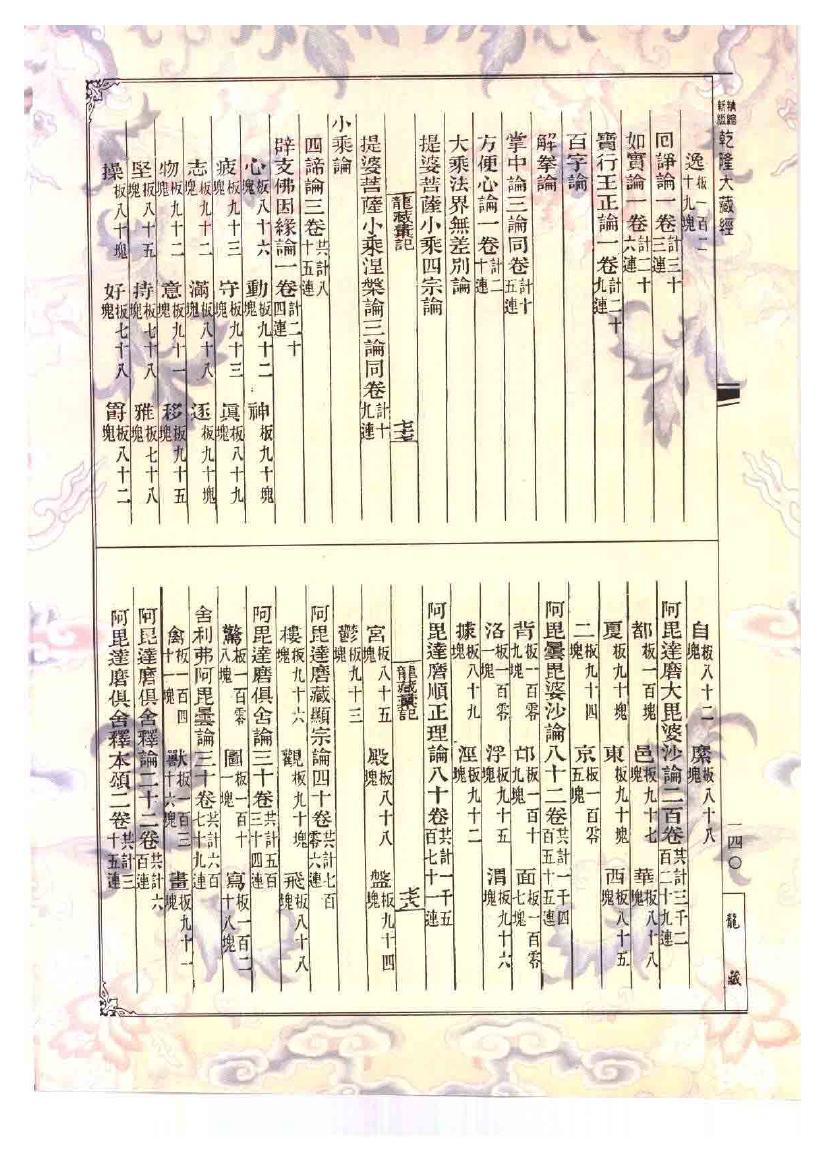 新編縮
乾隆大藏經
逸板一百二十九塊
回諍論一卷計三十三連
如實論一卷計二十六連
寶行王正論一卷計二十九連
百字論
解拳論
掌中論三論同卷計十五連
方便心論一卷計二十連
大乘法界無差別論
提婆菩薩小乘四宗論
龍藏彙記
七十五
提婆菩薩小乘涅槃論三論同卷計十九連
小乘論
四諦論三卷共計八十五連
辟支佛因緣論一卷計二十四連
心板八十六塊 動板九十二塊 神板九十塊
疲板九十三塊 守板九十三塊 真板八十九塊
志板九十二塊 滿板八十八塊 逐板九十塊
物板九十二塊 意板九十一塊 移板九十五塊
堅板八十五塊 持板七十八塊 雅板七十八塊
操板八十塊 好板七十八塊 爵板八十二塊
自板八十二塊 縻板八十八塊
阿毘達磨大毘婆沙論二百卷共計三千二百二十九連
都板一百塊 邑板九十七塊 華板八十八塊
夏板九十塊 東板九十塊 西板八十五塊
二板九十四塊 京板一百零五塊
阿毘曇毘婆沙論八十二卷共計一千四百五十五連
背板一百零九塊 邙板一百十九塊 面板一百零七塊
洛板一百零一塊 浮板九十五塊 渭板九十六塊
據板八十九塊 涇板九十二塊
阿毘達磨順正理論八十卷共計一千五百七十一連
龍藏彙記
七十六
宮板八十五塊 殿板八十八塊 盤板九十四塊
鬱板九十三塊
阿毘達磨藏顯宗論四十卷共計七百零六連
樓板九十六塊 觀板九十塊 飛板八十八塊
阿毘達磨俱舍論三十卷共計五百三十四連
驚板一百零八塊 圖板一百十一塊 寫板一百二十八塊
舍利弗阿毘曇論三十卷共計六百七十九連
禽板一百四十一塊 獸板一百三十六塊 畫板九十一塊
阿毘達磨俱舍釋論二十二卷共計六百連
阿毘達磨俱舍釋本頌二卷共計三十五連
一四〇
龍藏